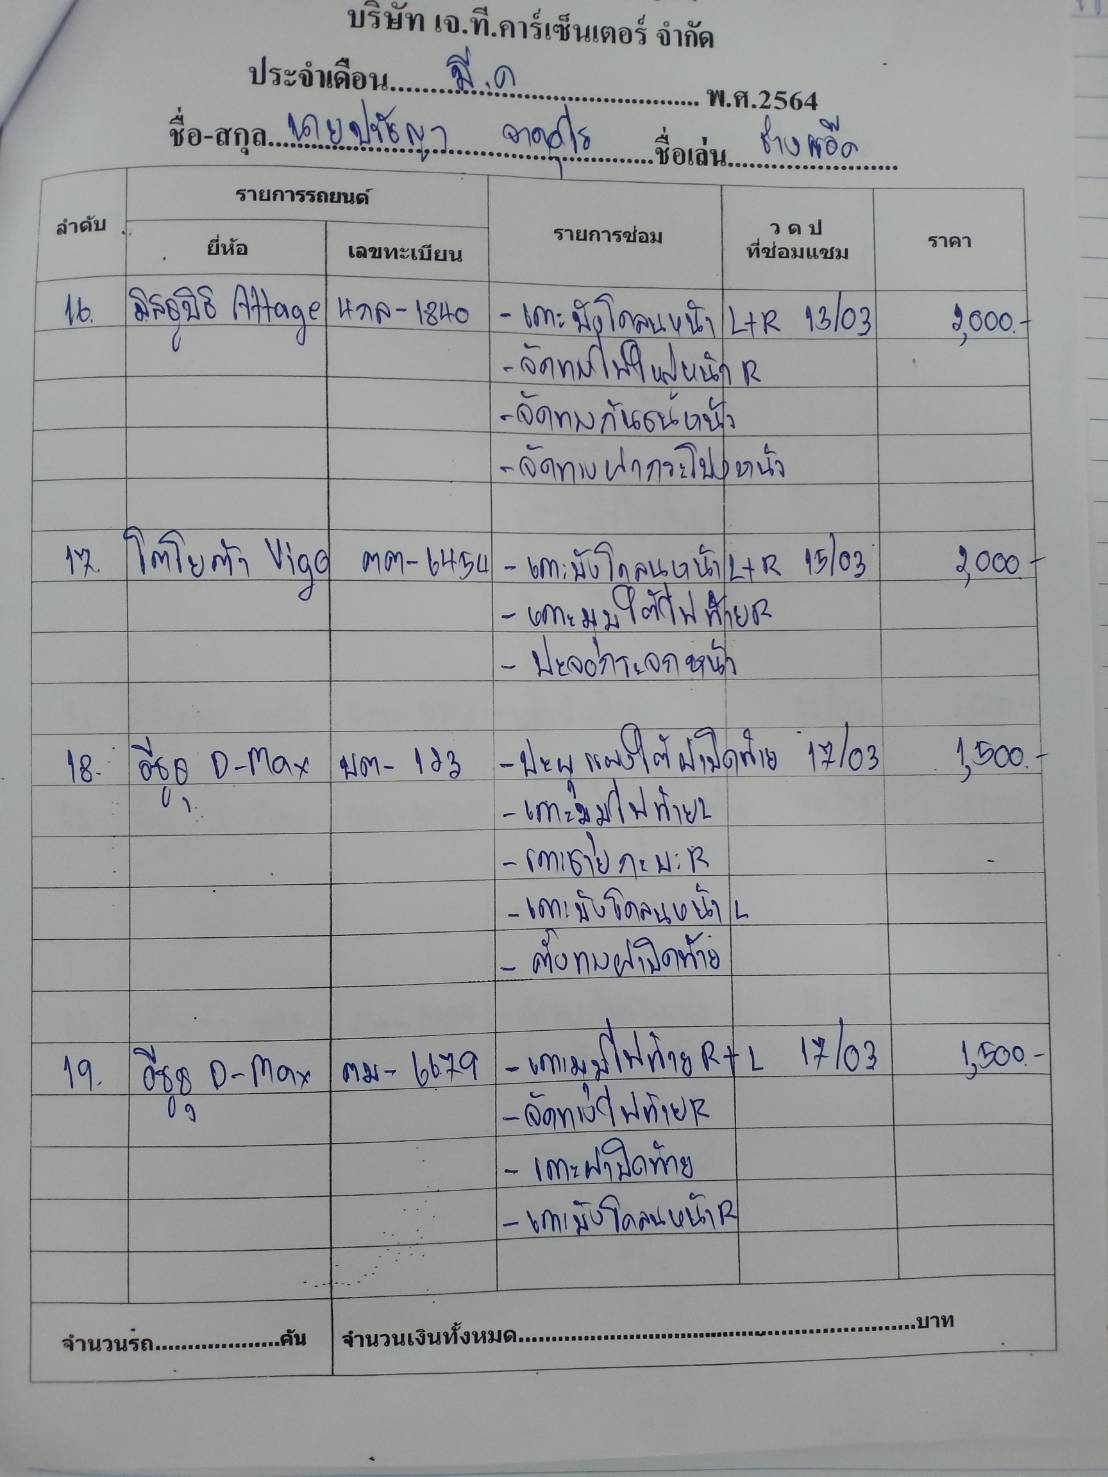 บริษัท เจ.ที.คาร์เซ็นเตอร์ จำกัด
ประจำเดือน มี.ค พ.ศ.2564
ชื่อ-สกุล นายปรัชญา ชื่อเล่น ช่าง
ลำดับ รายการรถยนต์ รายการซ่อม ว ด ป ที่ซ่อมแซม ราคา
ยี่ห้อ เลขทะเบียน
16. มิตซูบิชิ Attage 4กล-1840 - เคาะบังโคลนหน้า L+R 13/03 2,000.-
- จัดทางไฟใหญ่หน้า R
- จัดทางกันชนหน้า
- จัดทางฝากระโปรงหน้า
17. โตโยต้า Vigo ตต-6454 - เคาะบังโคลนหน้า L+R 15/03 2,000.-
- เคาะมุมใต้ไฟท้าย R
- ปะขอบกระจกหน้า
18. อีซูซุ D-Max บต-123 - ปะผุแผงใต้ฝาปิดท้าย 17/03 1,500.-
- เคาะมุมไฟท้าย L
- เคาะชายกะบะ R
- เคาะบังโคลนหน้า L
- ตั้งทางฝาปิดท้าย
19. อีซูซุ D-Max ตม-6679 - เคาะมุมไฟท้าย R+L 17/03 1,500.-
- จัดทางไฟท้าย R
- เคาะฝาปิดท้าย
- เคาะบังโคลนหน้า R
จำนวนรถ คัน จำนวนเงินทั้งหมด บาท